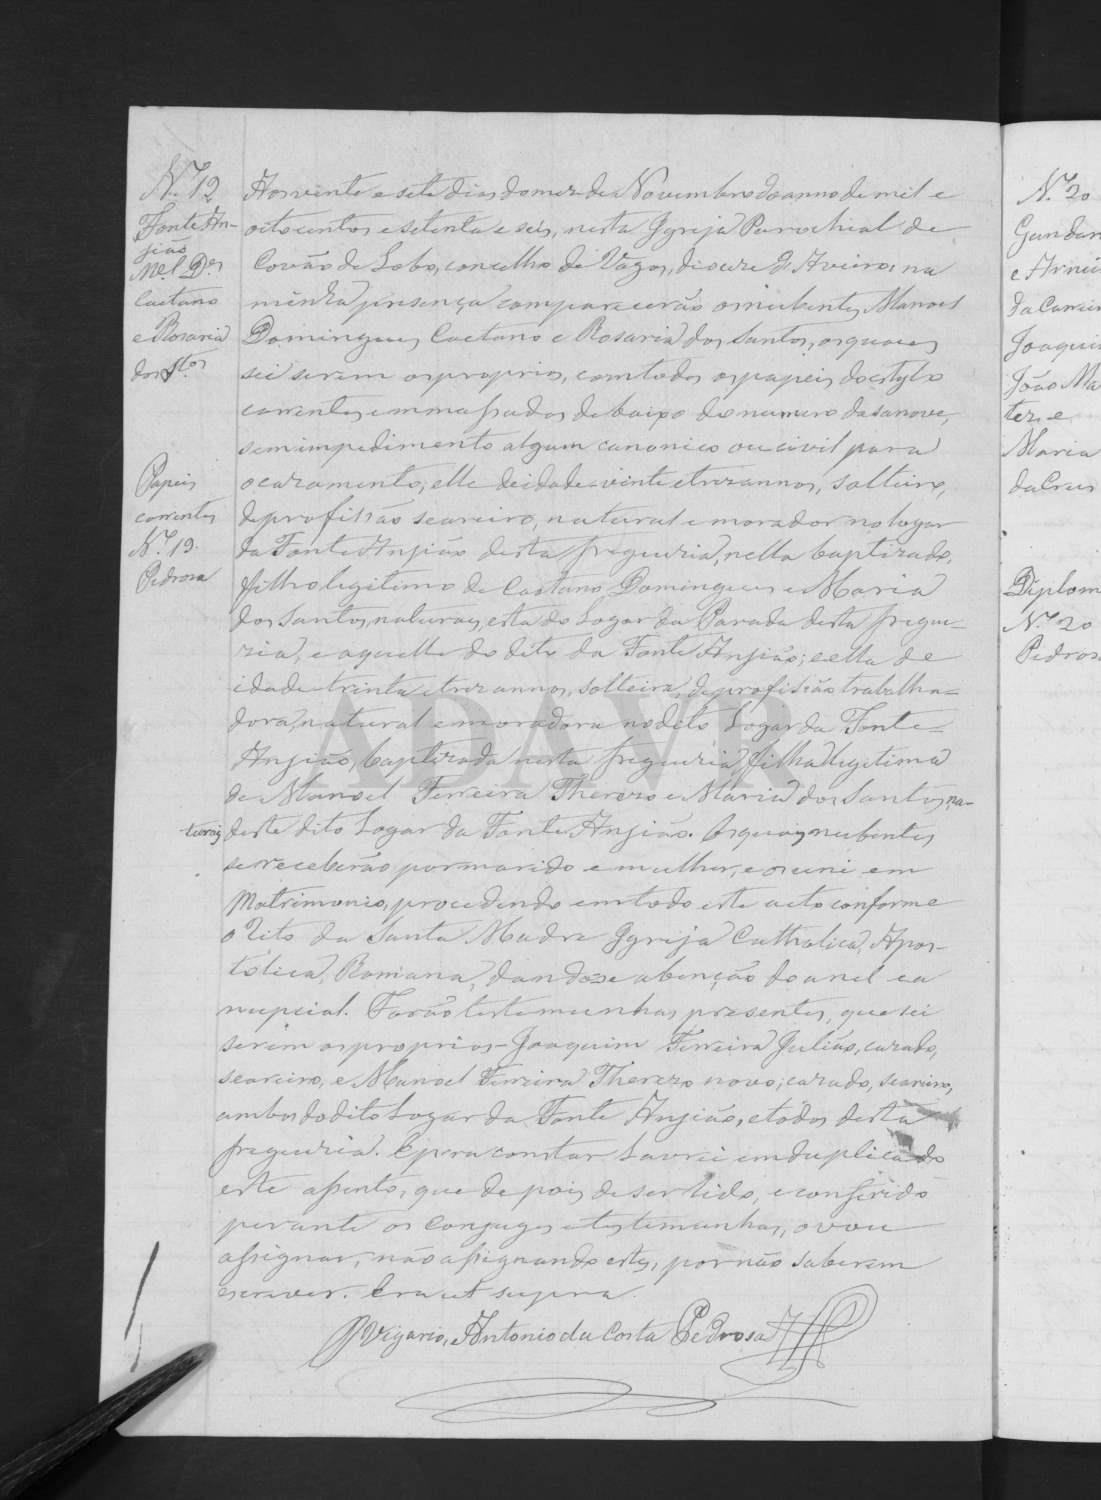 N.º 19
Fonte An-
jião
M.el D.es
Caetano
e Rosaria
dos S.tos
Papeis
correntes
N.º 19.
Pedrosa
Aos vinte e sete dias do mez de Novembro do anno de mil e
oitocentos e setenta e seis, nesta Ygreja Parochial de
Covão do Lobo, concelho de Vagos, diocese d' Aveiro, na
minha presença comparecerão os nubentes Manoel
Domingues Caetano e Rosaria dos Santos, os quaes
sei serem os proprios, com todos os papeis do estylo
correntes emmassados debaixo do numero dasanove,
sem impedimento algum canonico ou civil para
o casamento; elle de idade vinte e trez annos, solteiro,
de profissão seareiro, natural e morador no logar
da Fonte Anjião desta freguezia, nella baptizado,
filho legitimo de Caetano Domingues e Maria
dos Santos, naturaes, esta do Logar da Parada desta fregue-
zia, e aquelle do dito da Fonte Anjião; e ella de
idade trinta e trez annos, solteira, de profissão trabalha-
dora, natural e moradora no dito Logar da Fonte-
Anjião, baptizada nesta freguezia, filha legitima
de Manoel Ferreira Therezo e Maria dos Santos, na-
turaes deste dito Logar da Fonte Anjião. Os quaes nubentes
se receberão por marido e mulher, e os uni em
Matrimonio, procedendo em todo este acto conforme
o Rito da Santa Madre Ygreja Catholica, Apos-
tolica, Romana, dando-se a benção do anel e a
nupcial. Forão testemunhas presentes, que sei
serem os proprios - Joaquim Ferreira Julião, casado,
seareiro, e Manoel Ferreira Therezo novo, casado, seareiro,
ambos do dito Logar da Fonte Anjião, e todos desta
freguezia. E para constar lavrei em duplicado
este assento, que depois de ser lido, e conferido
perante os conjuges e testemunhas, o vou
assignar, não assignando estes, por não saberem
escrever. Era ut supra.
O Vigario, Antonio da Costa Pedrosa
N.º 20
Gandar
e Arneir
da Carreir
Joaquim
João Ma
ter e
Maria
da Cruz
Diplom
N.º 20
Pedros
ADAVR